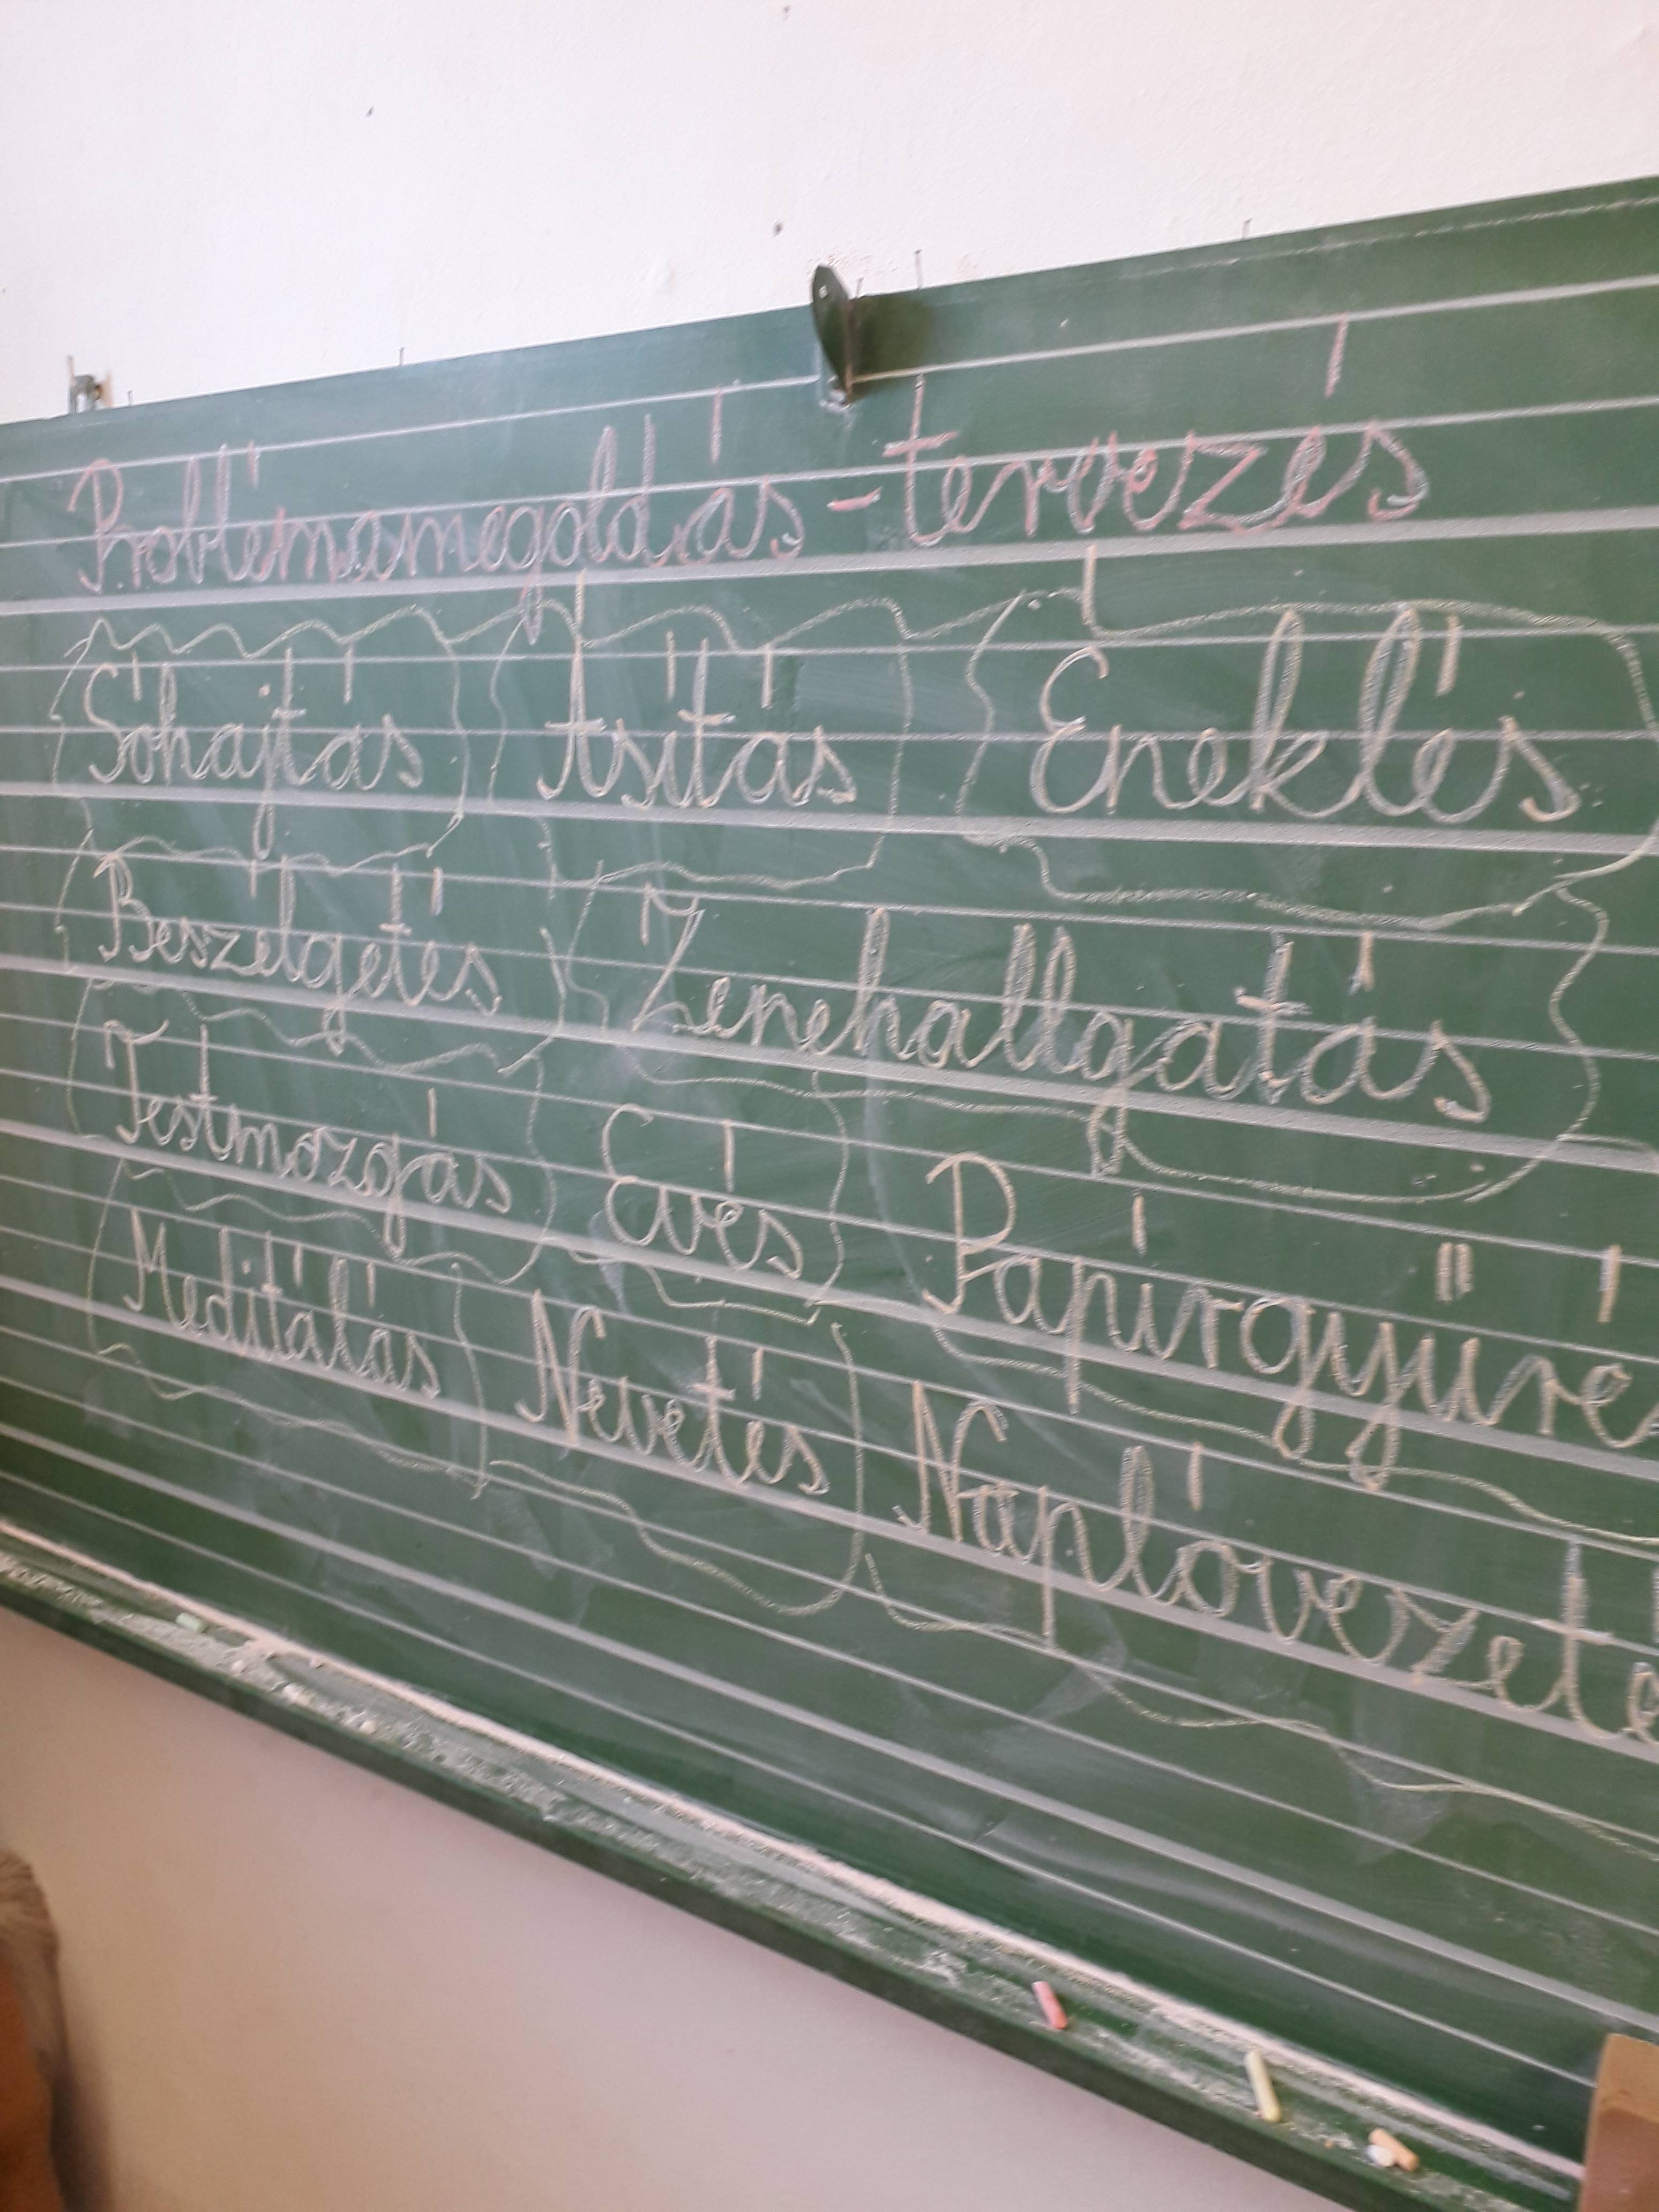 Problémamegoldás - tervezés
Sóhajtás Ásítás Éneklés
Beszélgetés Zenehallgatás
Testmozgás Evés Papírgyűré
Meditálás Nevetés Naplóvezeté